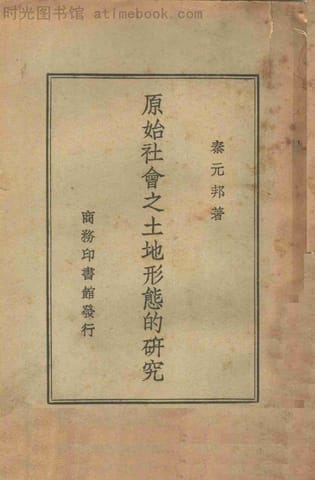 时光图书馆 - atimebook.com
秦元邦著
原始社會之土地形態的研究
商務印書館發行